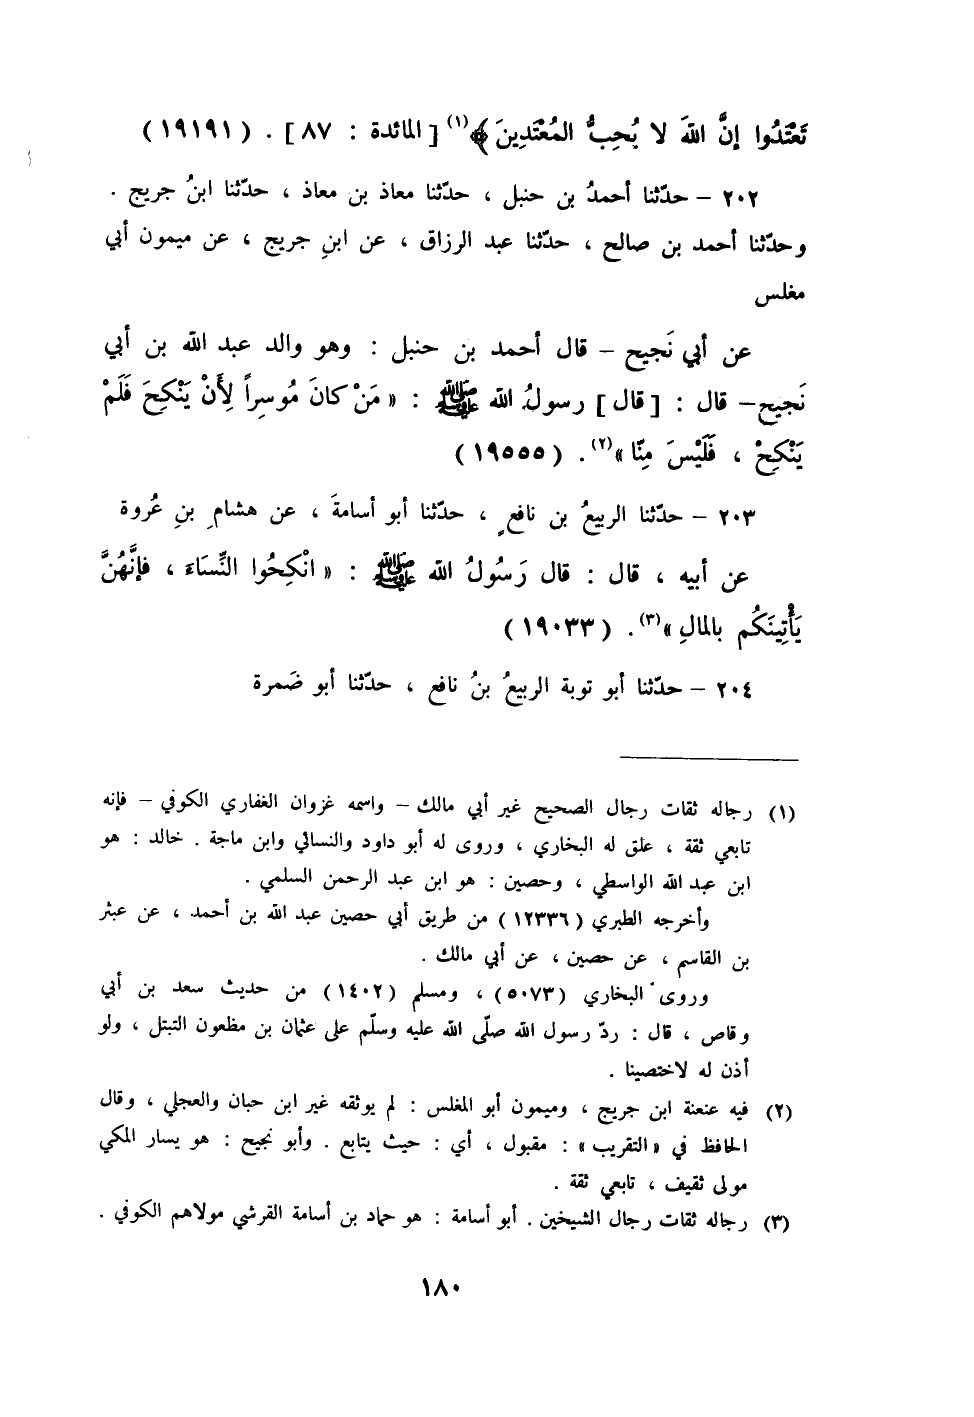 تَعْتَدُوا إنَّ اللهَ لا يُحِبُّ المُعْتَدِينَ﴾(١) [ المائدة : ٨٧ ] . ( ١٩١٩١ )
٢٠٢ – حدّثنا أحمدُ بن حنبل ، حدّثنا معاذ بن معاذ ، حدّثنا ابنُ جريج .
وحدّثنا أحمد بن صالح ، حدّثنا عبد الرزاق ، عن ابنِ جريج ، عن ميمون أبي
مغلس
عن أبي نَجيح – قال أحمد بن حنبل : وهو والد عبد الله بن أبي
نَجيح – قال : [ قال ] رسولُ الله ﷺ : « مَنْ كانَ مُوسِراً لِأَنْ يَنْكِحَ فَلَمْ
يَنْكِحْ ، فَلَيْسَ مِنّا »(٢) . ( ١٩٥٥٥ )
٢٠٣ – حدّثنا الربيعُ بن نافعٍ ، حدّثنا أبو أسامةَ ، عن هشامِ بنِ عُروة
عن أبيه ، قال : قال رَسُولُ الله ﷺ : « انْكِحُوا النِّسَاءَ ، فإنَّهُنَّ
يَأْتِينَكُم بالمالِ »(٣) . ( ١٩٠٣٣ )
٢٠٤ – حدّثنا أبو توبة الربيعُ بنُ نافع ، حدّثنا أبو ضَمرة
(١) رجاله ثقات رجال الصحيح غير أبي مالك – واسمه غزوان الغفاري الكوفي – فإنه
تابعي ثقة ، علق له البخاري ، وروى له أبو داود والنسائي وابن ماجة . خالد : هو
ابن عبد الله الواسطي ، وحصين : هو ابن عبد الرحمن السلمي .
وأخرجه الطبري ( ١٢٣٣٦ ) من طريق أبي حصين عبد الله بن أحمد ، عن عبثر
بن القاسم ، عن حصين ، عن أبي مالك .
وروى البخاري ( ٥٠٧٣ ) ، ومسلم ( ١٤٠٢ ) من حديث سعد بن أبي
وقاص ، قال : ردّ رسول الله صلّى الله عليه وسلّم على عثمان بن مظعون التبتل ، ولو
أذن له لاختصينا .
(٢) فيه عنعنة ابن جريج ، وميمون أبو المغلس : لم يوثقه غير ابن حبان والعجلي ، وقال
الحافظ في « التقريب » : مقبول ، أي : حيث يتابع . وأبو نجيح : هو يسار المكي
مولى ثقيف ، تابعي ثقة .
(٣) رجاله ثقات رجال الشيخين . أبو أسامة : هو حماد بن أسامة القرشي مولاهم الكوفي .
١٨٠